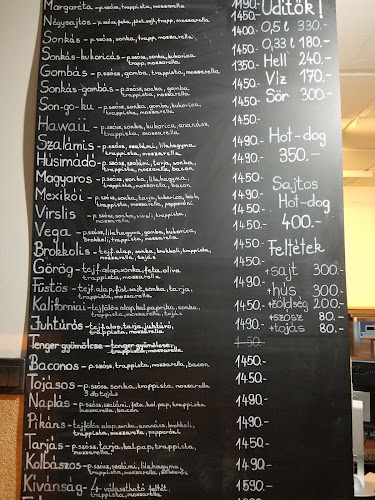 Margaréta - p.szósz, trappista, mozzarella 1190.-
Négysajtos - p.szósz, feta, füst.sajt, trapp, mozzarella 1450.-
Sonkás - p.szósz, sonka, trapp, mozzarella 1400.-
Sonkás-kukoricás - p.szósz, sonka, kukorica
trapp, mozzarella 1450.-
Gombás - p.szósz, gomba, trappista, mozzarella 1350.-
Sonkás-gombás - p.szósz, sonka, gomba
trappista, mozzarella 1450.-
Son-go-ku - p.szósz, sonka, gomba, kukorica,
trappista, mozzarella 1490.-
Hawaii - p.szósz, sonka, kukorica, ananász,
trappista, mozzarella 1450.-
Szalámis - p.szósz, szalámi, lilahagyma,
trappista, mozzarella 1490.-
Húsimádó - p.szósz, szalámi, tarja, sonka,
trappista, mozzarella, bacon 1490.-
Magyaros - p.szósz, sonka, lilahagyma,
trappista, mozzarella, bacon 1450.-
Mexikói - p.szósz, sonka, tarja, kukorica, bab,
trappista, mozzarella, pepperóni 1490.-
Virslis - p.szósz, sonka, virsli, trappista,
mozzarella 1450.-
Vega - p.szósz, lilahagyma, gomba, kukorica,
brokkoli, trappista, mozzarella 1490.-
Brokkolis - tejf. alap, sonka, brokkoli, trappista,
mozzarella, tojás 1450.-
Görög - tejf. alap, sonka, feta, oliva
trappista, mozzarella 1450.-
Füstös - tejf. alap, füst.sajt, sonka, tarja,
trappista, mozzarella 1450.-
Kaliforniai - tejfölös alap, kal.paprika, sonka,
trappista, mozzarella, tojás 1450.-
Juhtúrós - tejf. alap, tarja, juhtúró,
trappista, mozzarella 1490.-
Tenger gyümölcse - tenger gyümölcsei,
trappista, mozzarella
Baconos - p.szósz, trappista, mozzarella, bacon 1450.-
Tojásos - p.szósz, sonka, trappista, mozzarella
3 db tojás 1450.-
Naplás - p.szósz, szalámi, feta, kal.pap, trappista,
mozzarella, bacon 1490.-
Pikáns - tejfölös alap, sonka, ananász, brokkoli,
trappista, mozzarella, pepperóni 1490.-
Tarjás - p.szósz, tarja, kal.pap, trappista,
mozzarella 1450.-
Kolbászos - p.szósz, szalámi, lilahagyma,
trappista, mozzarella, 1490.-
Kívánság - 4 választható feltét
trappista, mozzarella 1530.-
Üdítők!
0,5 l 330.-
0,33 l 180.-
Hell 240.-
Víz 170.-
Sör 300.-
Hot-dog
350.-
Sajtos
Hot-dog
400.-
Feltétek
+sajt 300.-
+hús 300.-
+zöldség 200.-
+szósz 80.-
+tojás 80.-